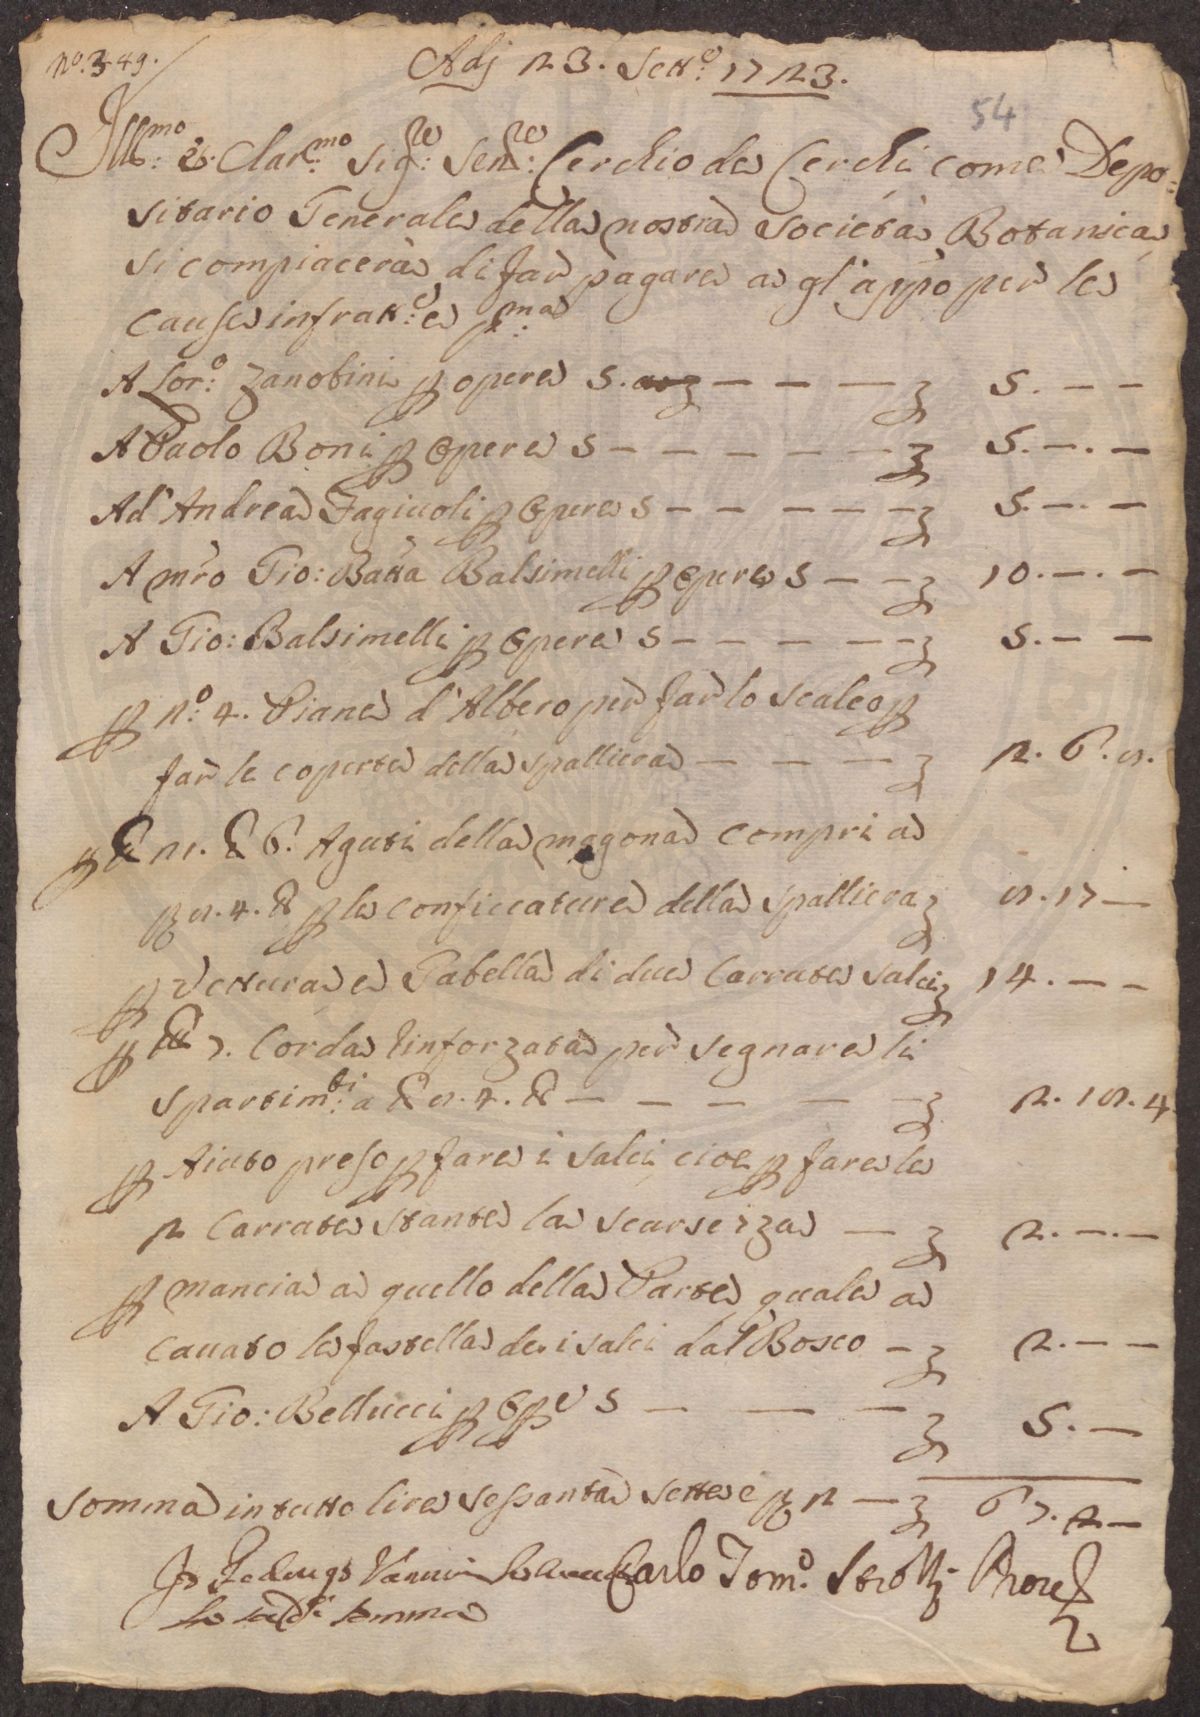 No. 349.
Adj 23. Sett.o 1723.
54
Ill.mo e Clar.mo Sig.re Sen.re Cerchio de Cerchi come Depo=
sitario Generale della nostra Società Botanica
si compiacerà di far pagare a gl'appo per le
cause infratt.e p.ma
A Lor.o Zanobini p opere 5. — — — 5. — —
A Paolo Boni p Opere 5 — — — — — — 5. —. —
Ad' Andrea Fagiuoli p Opere 5 — — — — — 5. —. —
A mro Gio: Batta Balsimelli p Opere 5 — — 10. —. —
A Gio: Balsimelli p Opere 5 — — — — — 5. — —
p n.o 4. Piane d'Albero per far lo scaleo p
far le coperte della spalliera — — — 2. 6. 8.
p 6. Aguti della magona compri a
p 8. 4. p le conficcature della spalliera 8. 17 —
p Vettura e Gabella di due Carrate salci 14. — —
p 7. Corda rinforzata per segnare li
spartim.ti a 8. 4. — — — — — 2. 18. 4
p Aiuto preso p fare i salci, cioe p fare le
2 Carrate stante la scarsezza — 2. —. —
p mancia a quello della Parte quale a
cauato le fastella de i salci dal Bosco — 2. — —
A Gio: Bellucci p Ope 5 — — — 5. —
Somma in tutto lire sessanta sette e p 2 — 67. 2 —
Io Vannini Carlo Tom.o Strozzi
la sad.a somma